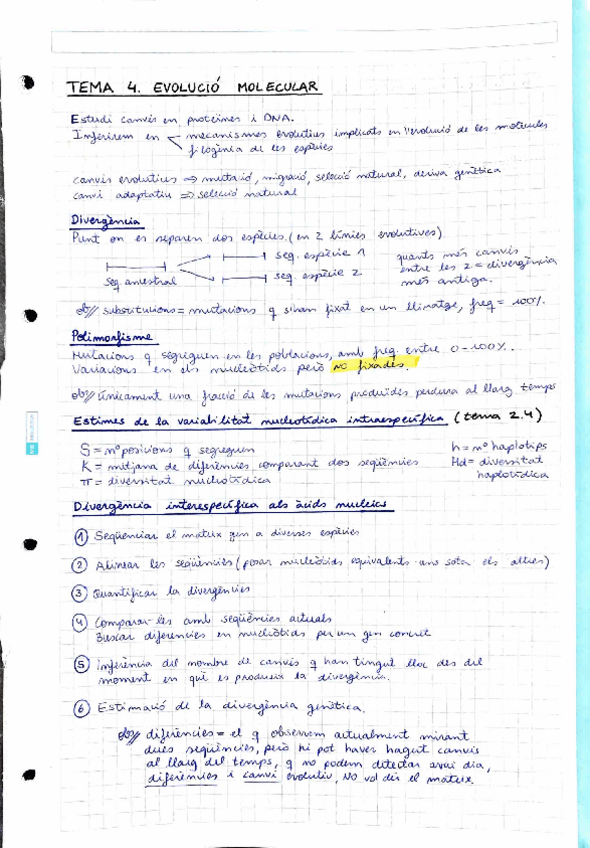 TEMA 4. EVOLUCIÓ MOLECULAR
Estudi canvis en proteïnes i DNA.
Inferirem en mecanismes evolutius implicats en l'evolució de les molècules
filogènia de les espècies
canvis evolutius ⇒ mutació, migració, selecció natural, deriva genètica
canvi adaptatiu ⇒ selecció natural
Divergència
Punt on es separen dos espècies. (en 2 línies evolutives)
seq. ancestral
seq. espècie 1
seq. espècie 2
quants més canvis
entre les 2 = divergència
més antiga.
ob// substitucions = mutacions q s'han fixat en un llinatge, freq = 100%.
Polimorfisme
Mutacions q segreguen en les poblacions, amb freq. entre 0-100%.
Variacions en els nucleòtids però NO fixades.
ob// únicament una fracció de les mutacions produïdes perdura al llarg temps
Estimes de la variabilitat nucleotídica intraespecífica (tema 2.4)
S = nº posicions q segreguen
K = mitjana de diferències comparant dos seqüències
π = diversitat nucleotídica
h = nº haplotips
Hd = diversitat
haplotídica
Divergència interespecífica als àcids nucleics
1 Seqüenciar el mateix gen a diverses espècies
2 Alinear les seqüències (posar nucleòtids equivalents uns sota els altres)
3 Quantificar la divergències
4 Comparar-les amb seqüències actuals
Buscar diferències en nucleòtids per un gen concret
5 inferència del nombre de canvis q han tingut lloc des del
moment en què es produeix la divergència.
6 Estimació de la divergència genètica.
ob// diferències = el q observem actualment mirant
dues seqüències, però hi pot haver hagut canvis
al llarg del temps, q no podem detectar avui dia,
diferències i canvi evolutiu, NO vol dir el mateix.